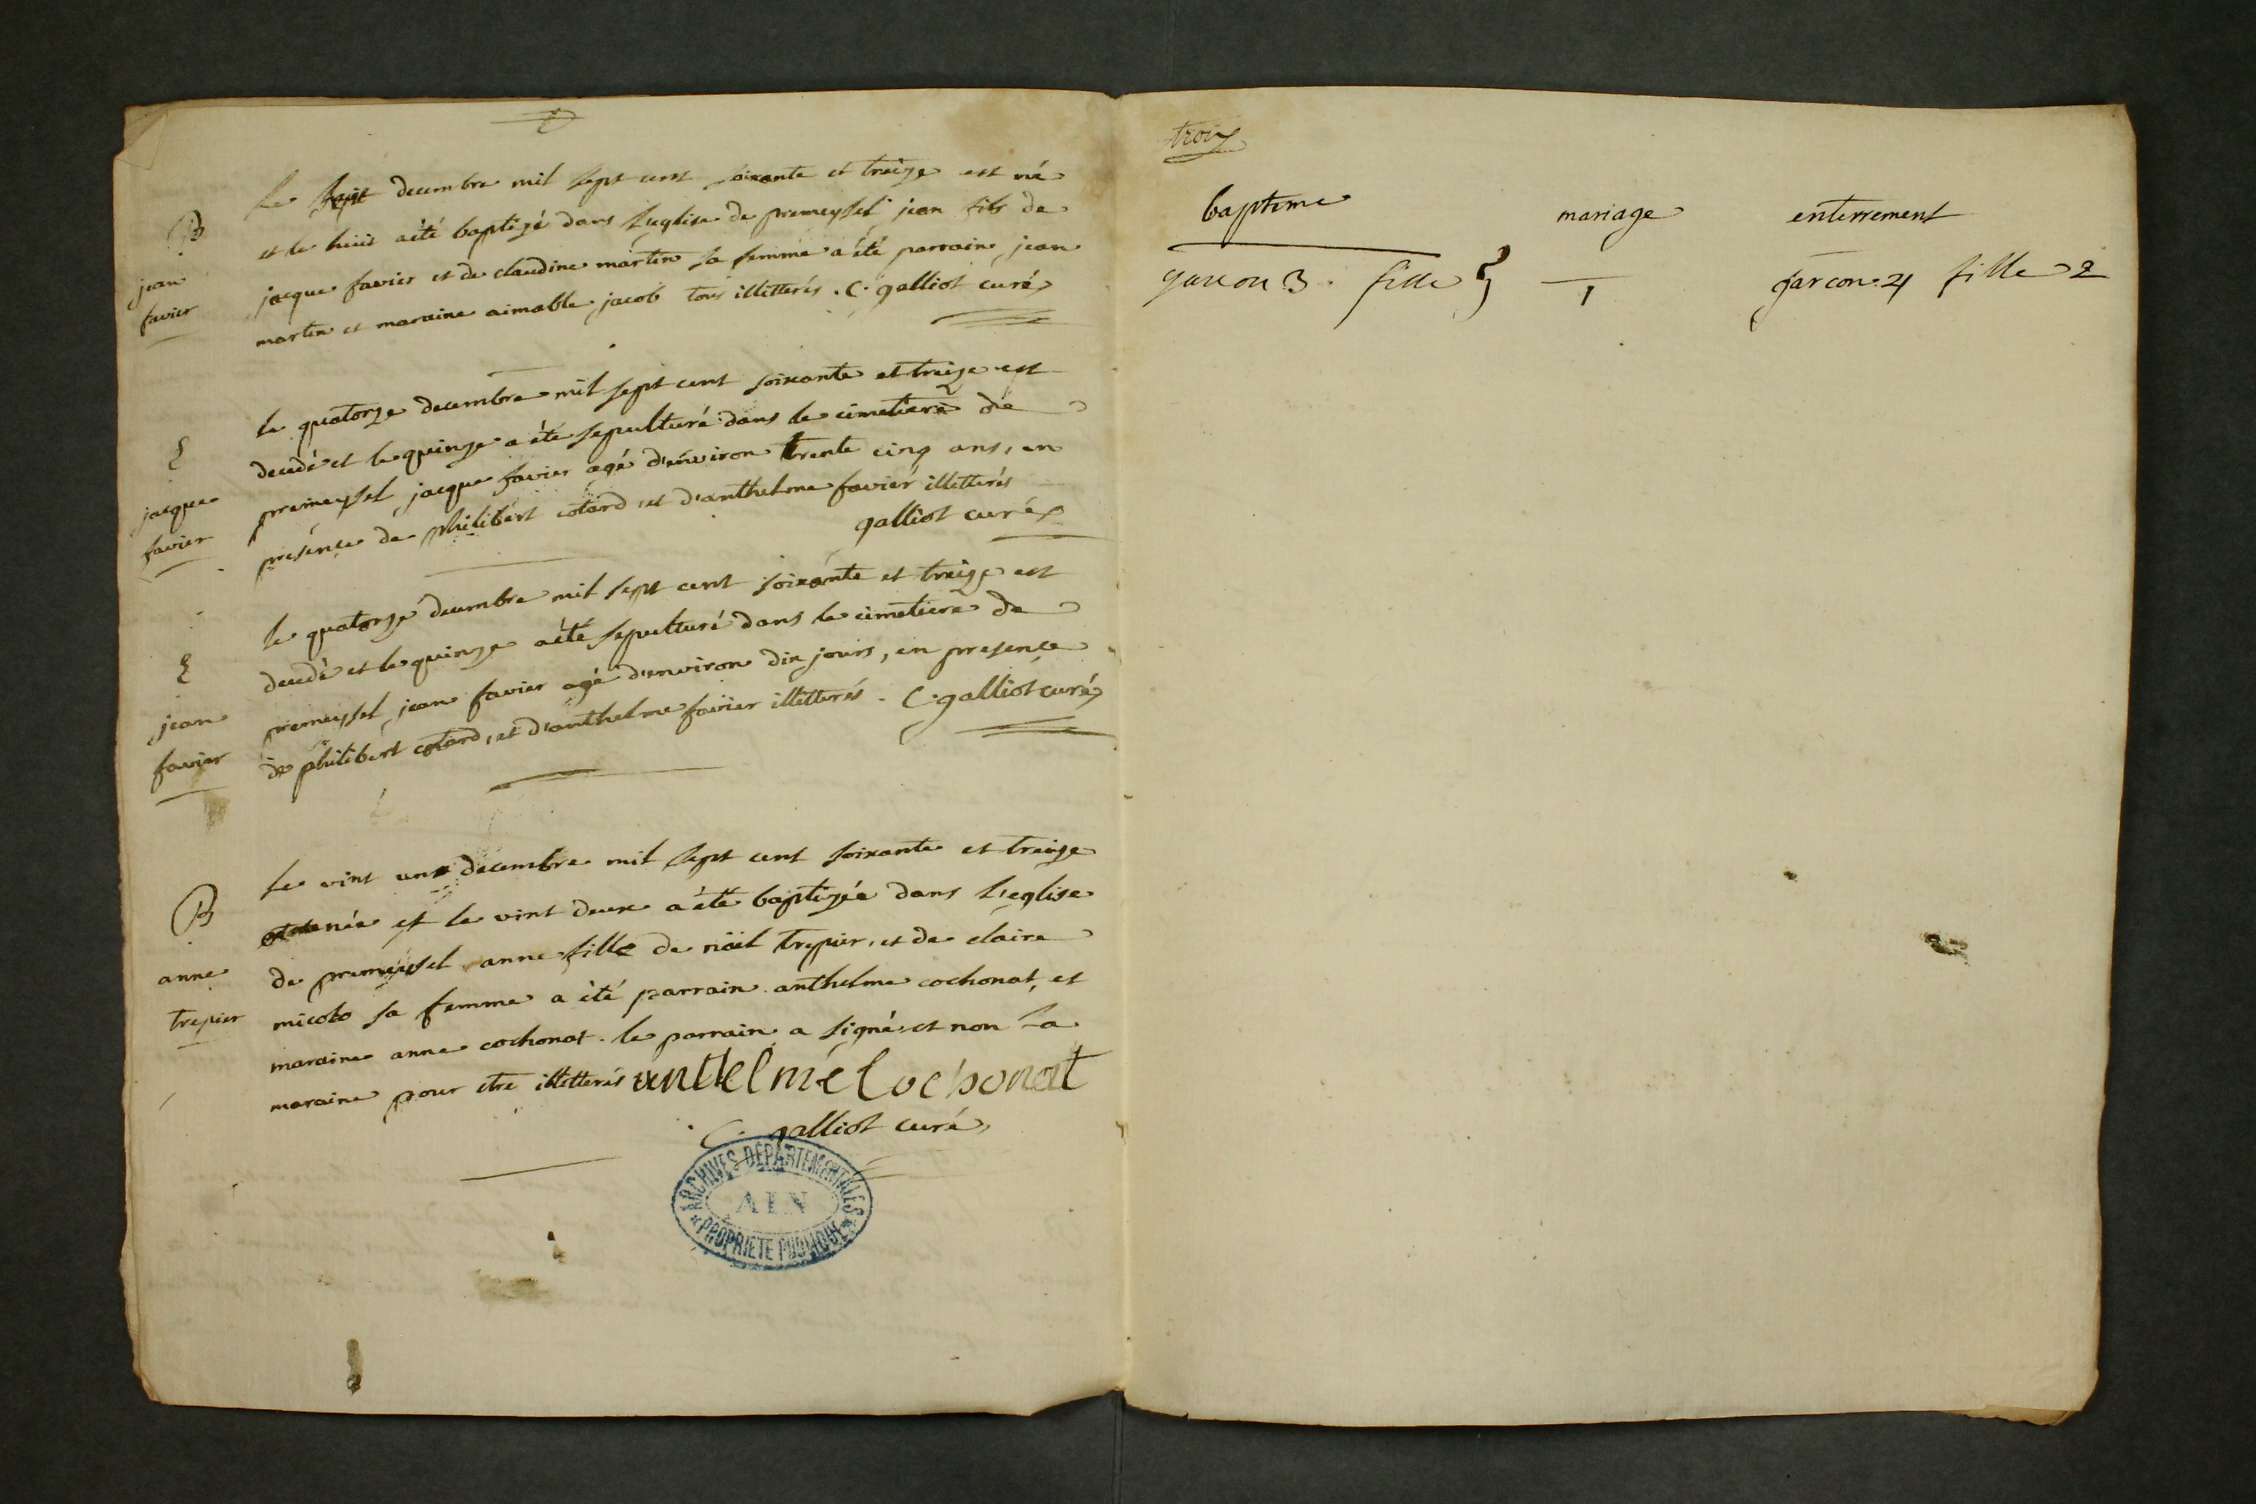 B
jean
favier
Le sept decembre mil sept cent soixante et treize est né
et le huit a été baptizé dans l'eglise de premeysel jean fils de
jacque favier et de claudine martin sa femme a été parrain jean
martin et maraine aimable jacob tous illitterés. C. galliot curé
jacque
favier
le quatorze decembre mil sept cent soixante et treize est
decedé et le quinze a été sepulturé dans le cimetiere de
premeysel jacque favier agé d'environ trente cinq ans, en
presence de philibert cotard et d'anthelme favier illitterés
galliot curé
jean
favier
le quatorze decembre mil sept cent soixante et treize est
decedé et le quinze a été sepulturé dans le cimetiere de
premeysel jean favier agé d'environ dix jours, en presence
de philibert cotard, et d'anthelme favier illitterés. C. galliot curé
B
anne
trepier
Le vint un decembre mil sept cent soixante et treize
née et le vint deux a été baptizée dans l'eglise
de premeysel anne fille de nöel trepier, et de claire
micoto sa femme a été parrain anthelme cochonat, et
maraine anne cochonat. le parrain a signé et non la
maraine pour etre illitterés antelmé Cochonat
C. galliot curé
ARCHIVES DÉPARTEMENTALES
AIN
PROPRIÉTÉ PUBLIQUE
troix
bapteme mariage enterrement
garcon 3. fille 1 garcon. 4 fille 2